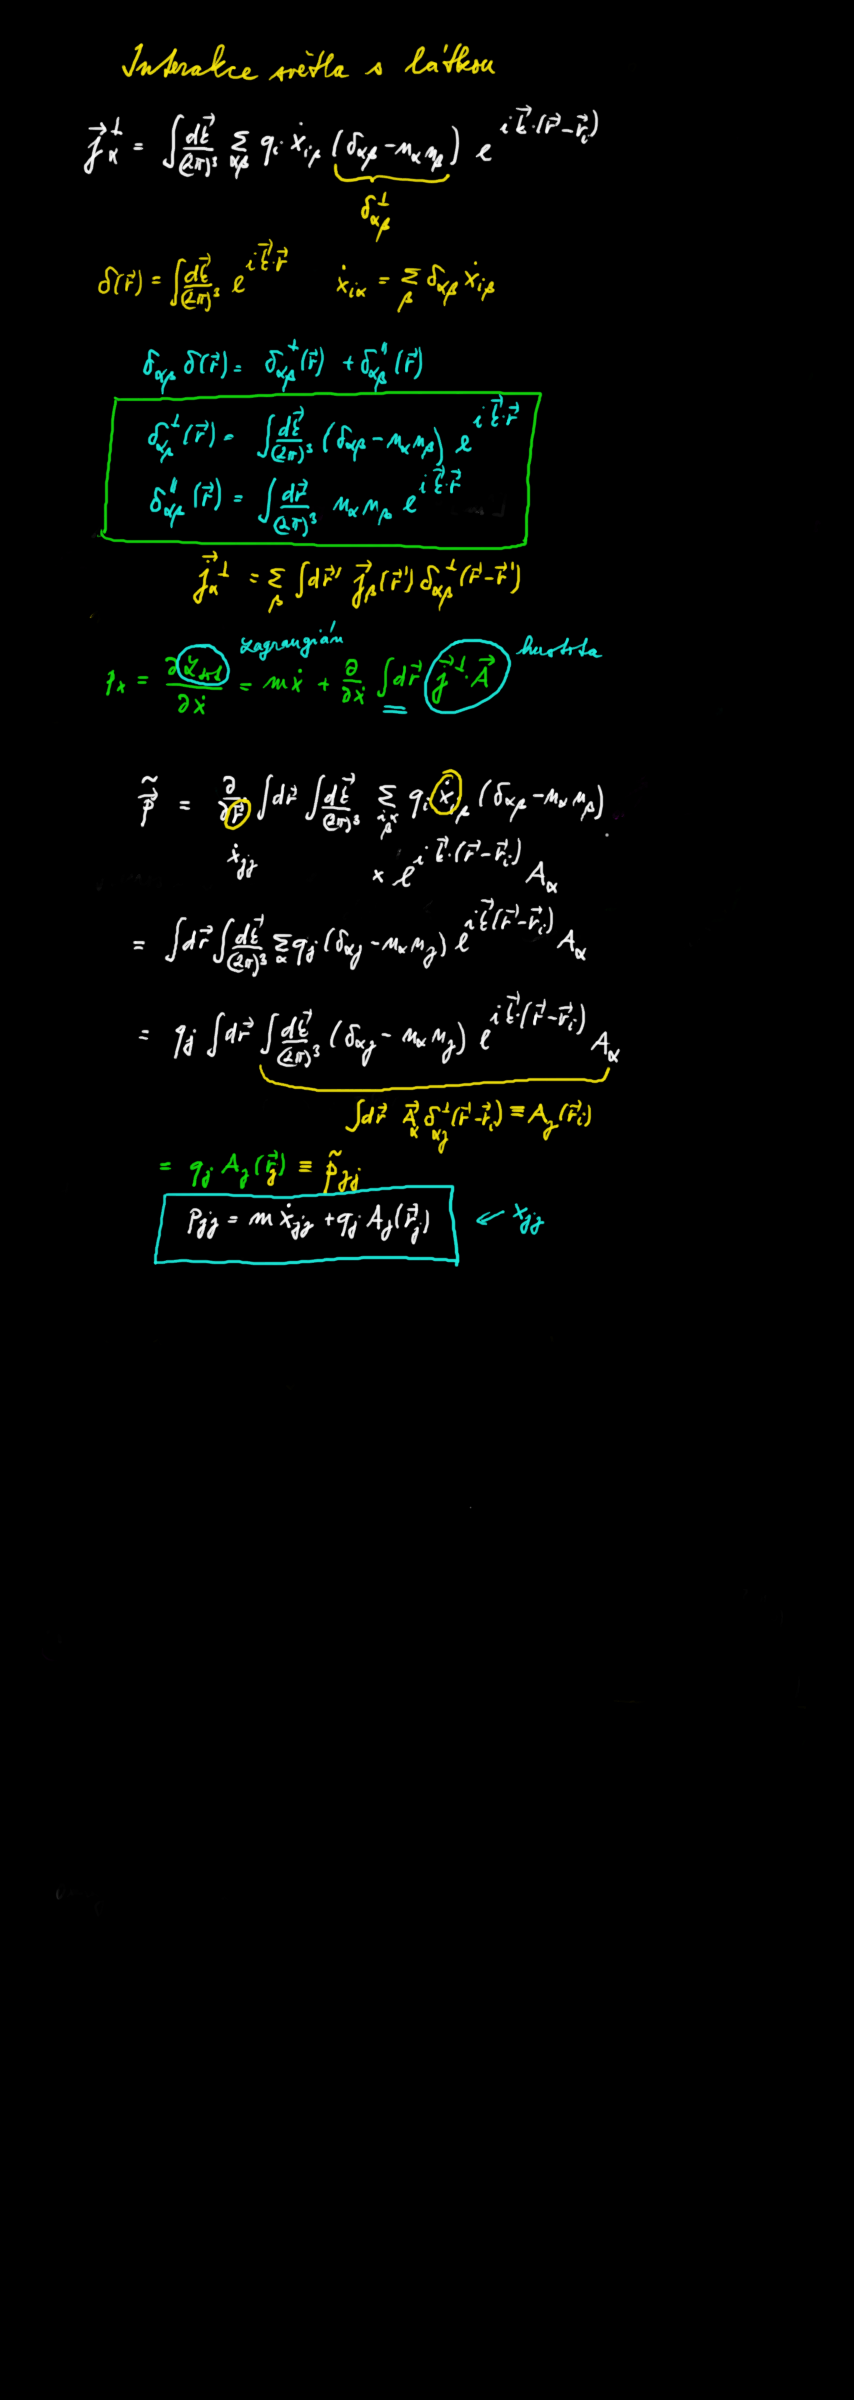 Interakce světla s látkou
\vec{j}_α^⊥ = ∫ d\vec{k}/(2π)³ Σ_{αβ} q_i ẋ_{iβ} (δ_{αβ} - n_α n_β) e^{i\vec{k}·(\vec{r}-\vec{r}_i)}
δ_{αβ}^⊥
δ(\vec{r}) = ∫ d\vec{k}/(2π)³ e^{i\vec{k}·\vec{r}} ẋ_{iα} = Σ_β δ_{αβ} ẋ_{iβ}
δ_{αβ} δ(\vec{r}) = δ_{αβ}^⊥(\vec{r}) + δ_{αβ}^{∥}(\vec{r})
δ_{αβ}^⊥(\vec{r}) = ∫ d\vec{k}/(2π)³ (δ_{αβ} - n_α n_β) e^{i\vec{k}·\vec{r}}
δ_{αβ}^{∥}(\vec{r}) = ∫ d\vec{r}/(2π)³ n_α n_β e^{i\vec{k}·\vec{r}}
\vec{j}_α^⊥ = Σ_β ∫ d\vec{r}' \vec{j}_β(\vec{r}') δ_{αβ}^⊥(\vec{r}-\vec{r}')
Lagrangián hustota
p_x = ∂L_{tot}/∂ẋ = mẋ + ∂/∂ẋ ∫ d\vec{r} \vec{j}^⊥·\vec{A}
\tilde{\vec{p}} = ∂/∂\dot{\vec{r}} ∫ d\vec{r} ∫ d\vec{k}/(2π)³ Σ_{iαβ} q_i ẋ_{iβ} (δ_{αβ} - n_α n_β)
ẋ_{jγ} × e^{i\vec{k}·(\vec{r}-\vec{r}_i)} A_α
= ∫ d\vec{r} ∫ d\vec{k}/(2π)³ Σ_α q_j (δ_{αγ} - n_α n_γ) e^{i\vec{k}(\vec{r}-\vec{r}_i)} A_α
= q_j ∫ d\vec{r} ∫ d\vec{k}/(2π)³ (δ_{αγ} - n_α n_γ) e^{i\vec{k}·(\vec{r}-\vec{r}_i)} A_α
∫ d\vec{r} \vec{A}_α δ_{αγ}^⊥(\vec{r}-\vec{r}_i) ≡ A_γ(\vec{r}_i)
= q_j A_γ(\vec{r}_j) ≡ \tilde{p}_{γj}
p_{jγ} = m ẋ_{jγ} + q_j A_γ(\vec{r}_j) ← x_{jγ}